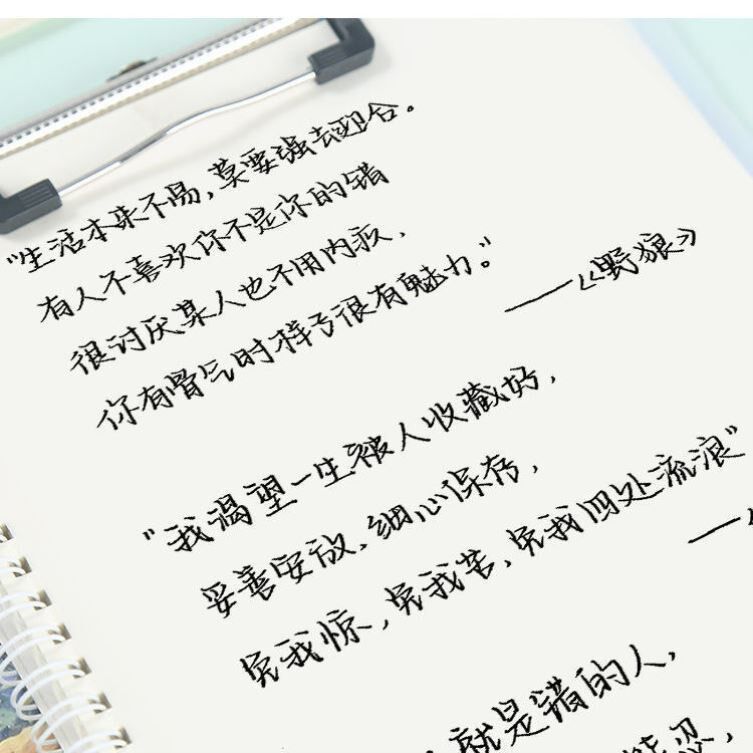 “生活本来不易，莫要强去迎合。
有人不喜欢你不是你的错
很讨厌某人也不用内疚、
你有骨气时样子很有魅力。”
——《野狼》
“我渴望一生被人收藏好，
妥善安放，细心保存，
免我惊，免我苦，免我四处流浪”
——《
就是错的人，
忍，